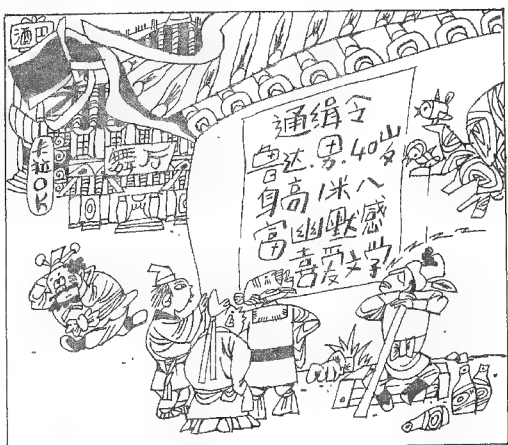 酒巴
卡拉OK
舞厅
通缉令
鲁达.男.40岁
身高1米八
富幽默感
喜爱文学